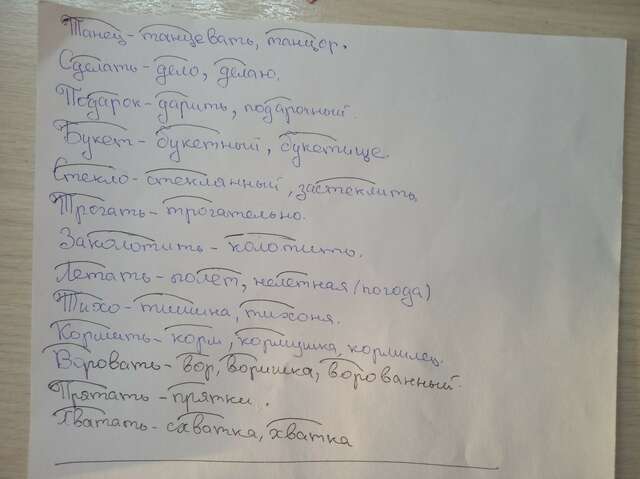 Танец - танцевать, танцор.
Сделать - дело, делаю.
Подарок - дарить, подарочный.
Букет - букетный, букетище.
Стекло - стеклянный, застеклить.
Трогать - трогательно.
Заколотить - колотить.
Летать - полёт, нелётная (погода)
Тихо - тишина, тихоня.
Кормить - корм, кормушка, кормилец.
Воровать - вор, воришка, ворованный.
Прятать - прятки.
Хватать - схватка, хватка